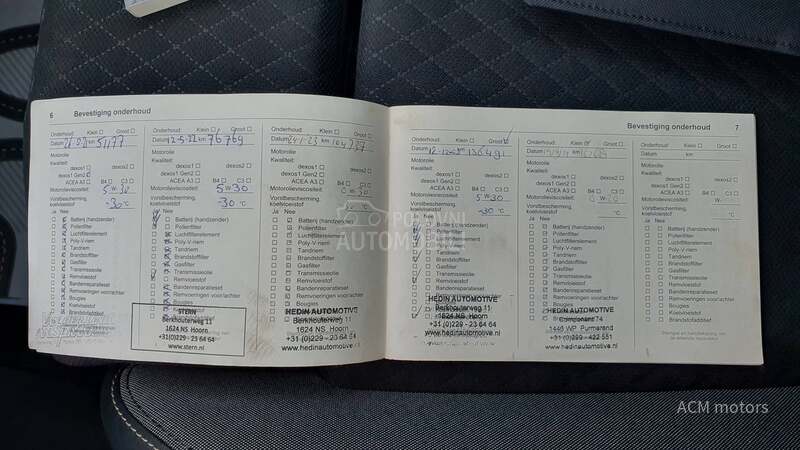 6 Bevestiging onderhoud
Onderhoud: Klein Groot
Datum km 5477
Motorolie
Kwaliteit:
dexos1
dexos1 Gen2
ACEA A3 B4 C3
Motorolieviscositeit: 5 W 30
Vorstbescherming
koelvloeistof -30 °C
Ja Nee
Batterij (handzender)
Pollenfilter
Luchtfilterelement
Poly-V-riem
Tandriem
Brandstoffilter
Gasfilter
Transmissieolie
Remvloeistof
Bandenreparatieset
Remvoeringen voor/achter
Bougies
Koelvloeistof
Brandstofadditief
Onderhoud: Klein Groot
Datum 12-5-22 km 76769
Motorolie
Kwaliteit:
dexos1
dexos1 Gen2
ACEA A3 B4 C3
Motorolieviscositeit: 5 W 30
Vorstbescherming
koelvloeistof -30 °C
Ja Nee
Batterij (handzender)
Pollenfilter
Luchtfilterelement
Poly-V-riem
Tandriem
Brandstoffilter
Gasfilter
Transmissieolie
Remvloeistof
Bandenreparatieset
Remvoeringen voor/achter
STERN
Berkhouterweg 11
1624 NS Hoorn
+31(0)229 - 23 64 64
www.stern.nl
Onderhoud: Klein Groot
Datum 24-1-23 km
Motorolie
Kwaliteit:
dexos1
dexos1 Gen2
ACEA A3 B4 C3
Motorolieviscositeit: W
Vorstbescherming
koelvloeistof °C
Ja Nee
Batterij (handzender)
Pollenfilter
Luchtfilterelement
Poly-V-riem
Tandriem
Brandstoffilter
Gasfilter
Transmissieolie
Remvloeistof
Bandenreparatieset
Remvoeringen voor/achter
Bougies
HEDIN AUTOMOTIVE
Berkhouterweg 11
1624 NS Hoorn
+31 (0)229 - 23 64 64
www.hedinautomotive.nl
Bevestiging onderhoud 7
Onderhoud: Klein Groot
Datum km 136491
Motorolie
Kwaliteit:
dexos1
dexos1 Gen2
ACEA A3 B4 C3
Motorolieviscositeit: 5 W 30
Vorstbescherming
koelvloeistof -30 °C
Ja Nee
Batterij (handzender)
Pollenfilter
Luchtfilterelement
Poly-V-riem
Tandriem
Brandstoffilter
Gasfilter
Transmissieolie
Remvloeistof
Bandenreparatieset
HEDIN AUTOMOTIVE
Berkhouterweg 11
1624 NS Hoorn
+31 (0)229 - 23 64 64
www.hedinautomotive.nl
Onderhoud: Klein Groot
Datum km
Motorolie
Kwaliteit:
dexos1
dexos1 Gen2
ACEA A3 B4 C3
Motorolieviscositeit: W
Vorstbescherming
koelvloeistof °C
Ja Nee
Batterij (handzender)
Pollenfilter
Luchtfilterelement
Poly-V-riem
Tandriem
Brandstoffilter
Gasfilter
Transmissieolie
Remvloeistof
Bandenreparatieset
Remvoeringen voor/achter
Bougies
HEDIN AUTOMOTIVE
Component 74
1446 WP Purmerend
+31 (0)299 - 422 551
www.hedinautomotive.nl
Onderhoud: Klein Groot
Datum km
Motorolie
Kwaliteit:
dexos1
dexos1 Gen2
ACEA A3 B4 C3
Motorolieviscositeit: W-
Vorstbescherming
koelvloeistof °C
Ja Nee
Batterij (handzender)
Pollenfilter
Luchtfilterelement
Poly-V-riem
Tandriem
Brandstoffilter
Gasfilter
Transmissieolie
Remvloeistof
Bandenreparatieset
Remvoeringen voor/achter
Bougies
Koelvloeistof
Brandstofadditief
POLOVNI
AUTOMOBILI
ACM motors